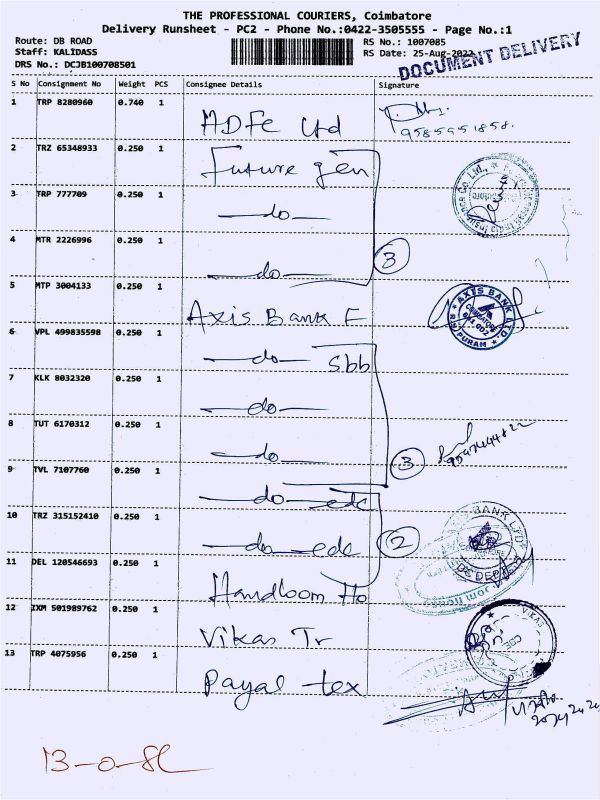 THE PROFESSIONAL COURIERS, Coimbatore
Delivery Runsheet - PC2 - Phone No.:0422-3505555 - Page No.:1
Route: DB ROAD
Staff: KALIDASS
DRS No.: DCJB100708501
RS No.: 1007085
RS Date: 25-Aug-2022
DOCUMENT DELIVERY
S No Consignment No Weight PCS Consignee Details Signature
1 TRP 8280960 0.740 1 HDFC Ltd
9585951858.
2 TRZ 65348933 0.250 1 Future gen
3 TRP 777709 0.250 1 —do—
4 MTR 2226996 0.250 1 —do— 3
5 MTP 3004133 0.250 1 Axis Bank F
AXIS BANK LTD.
PURAM
6 VPL 499835598 0.250 1 —do— Sbb
7 KLK 8032320 0.250 1 —do—
8 TUT 6170312 0.250 1 —do— 3
9 TVL 7107760 0.250 1 —do— edc
10 TRZ 315152410 0.250 1 —do— edc 2
BANK LTD
11 DEL 120546693 0.250 1 Handloom Ho
12 IXM 501989762 0.250 1 Vikas Tr
VIKAS
13 TRP 4075956 0.250 1 Payal tex